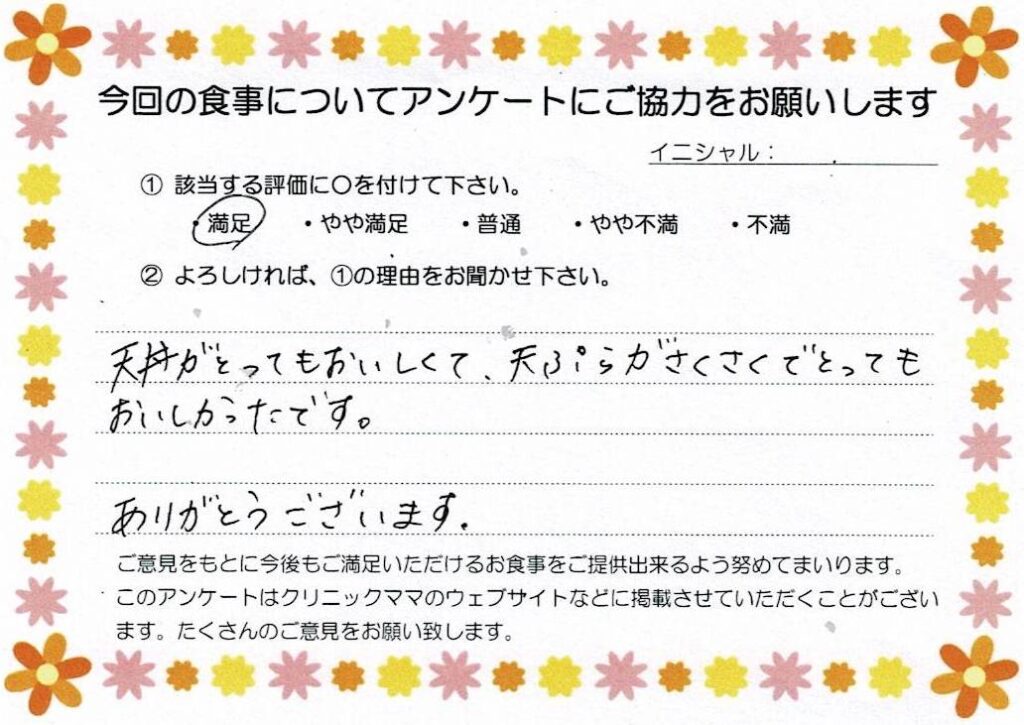 今回の食事についてアンケートにご協力をお願いします
イニシャル:
① 該当する評価に〇を付けて下さい。
・満足 ・やや満足 ・普通 ・やや不満 ・不満
② よろしければ、①の理由をお聞かせ下さい。
天丼がとってもおいしくて、天ぷらがさくさくでとっても
おいしかったです。
ありがとうございます.
ご意見をもとに今後もご満足いただけるお食事をご提供出来るよう努めてまいります。
このアンケートはクリニックママのウェブサイトなどに掲載させていただくことがござい
ます。たくさんのご意見をお願い致します。